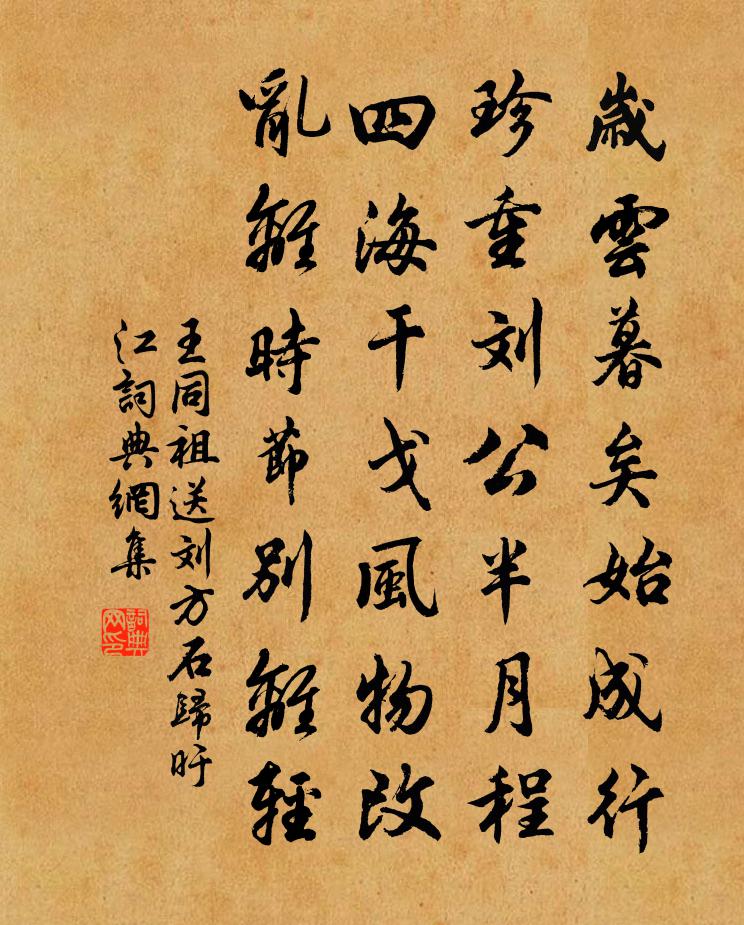 歲雲暮矣始成行
珍重刘公半月程
四海干戈風物改
亂離時節別離輕
王同祖送刘方石歸旴
江詞典網集
詞典网印